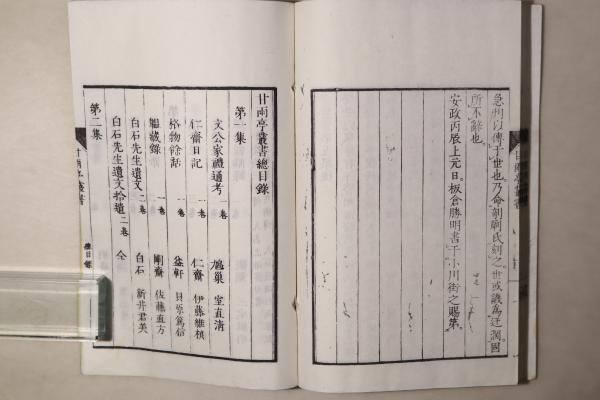 急刊以傳于世也乃命剞劂氏刻之世或譏為迂濶固
所不辭也
安政丙辰上元日板倉勝明書于小川街之賜第
甘雨亭叢書總目錄
第一集
文公家禮通考 一卷 鳩巢 室直清
仁齋日記 一卷 仁齋 伊藤維楨
格物餘話 一卷 益軒 貝原篤信
韞藏錄 一卷 剛齋 佐藤直方
白石先生遺文 二卷 白石 新井君美
白石先生遺文拾遺 二卷 仝
第二集
甘雨亭叢書
總目錄